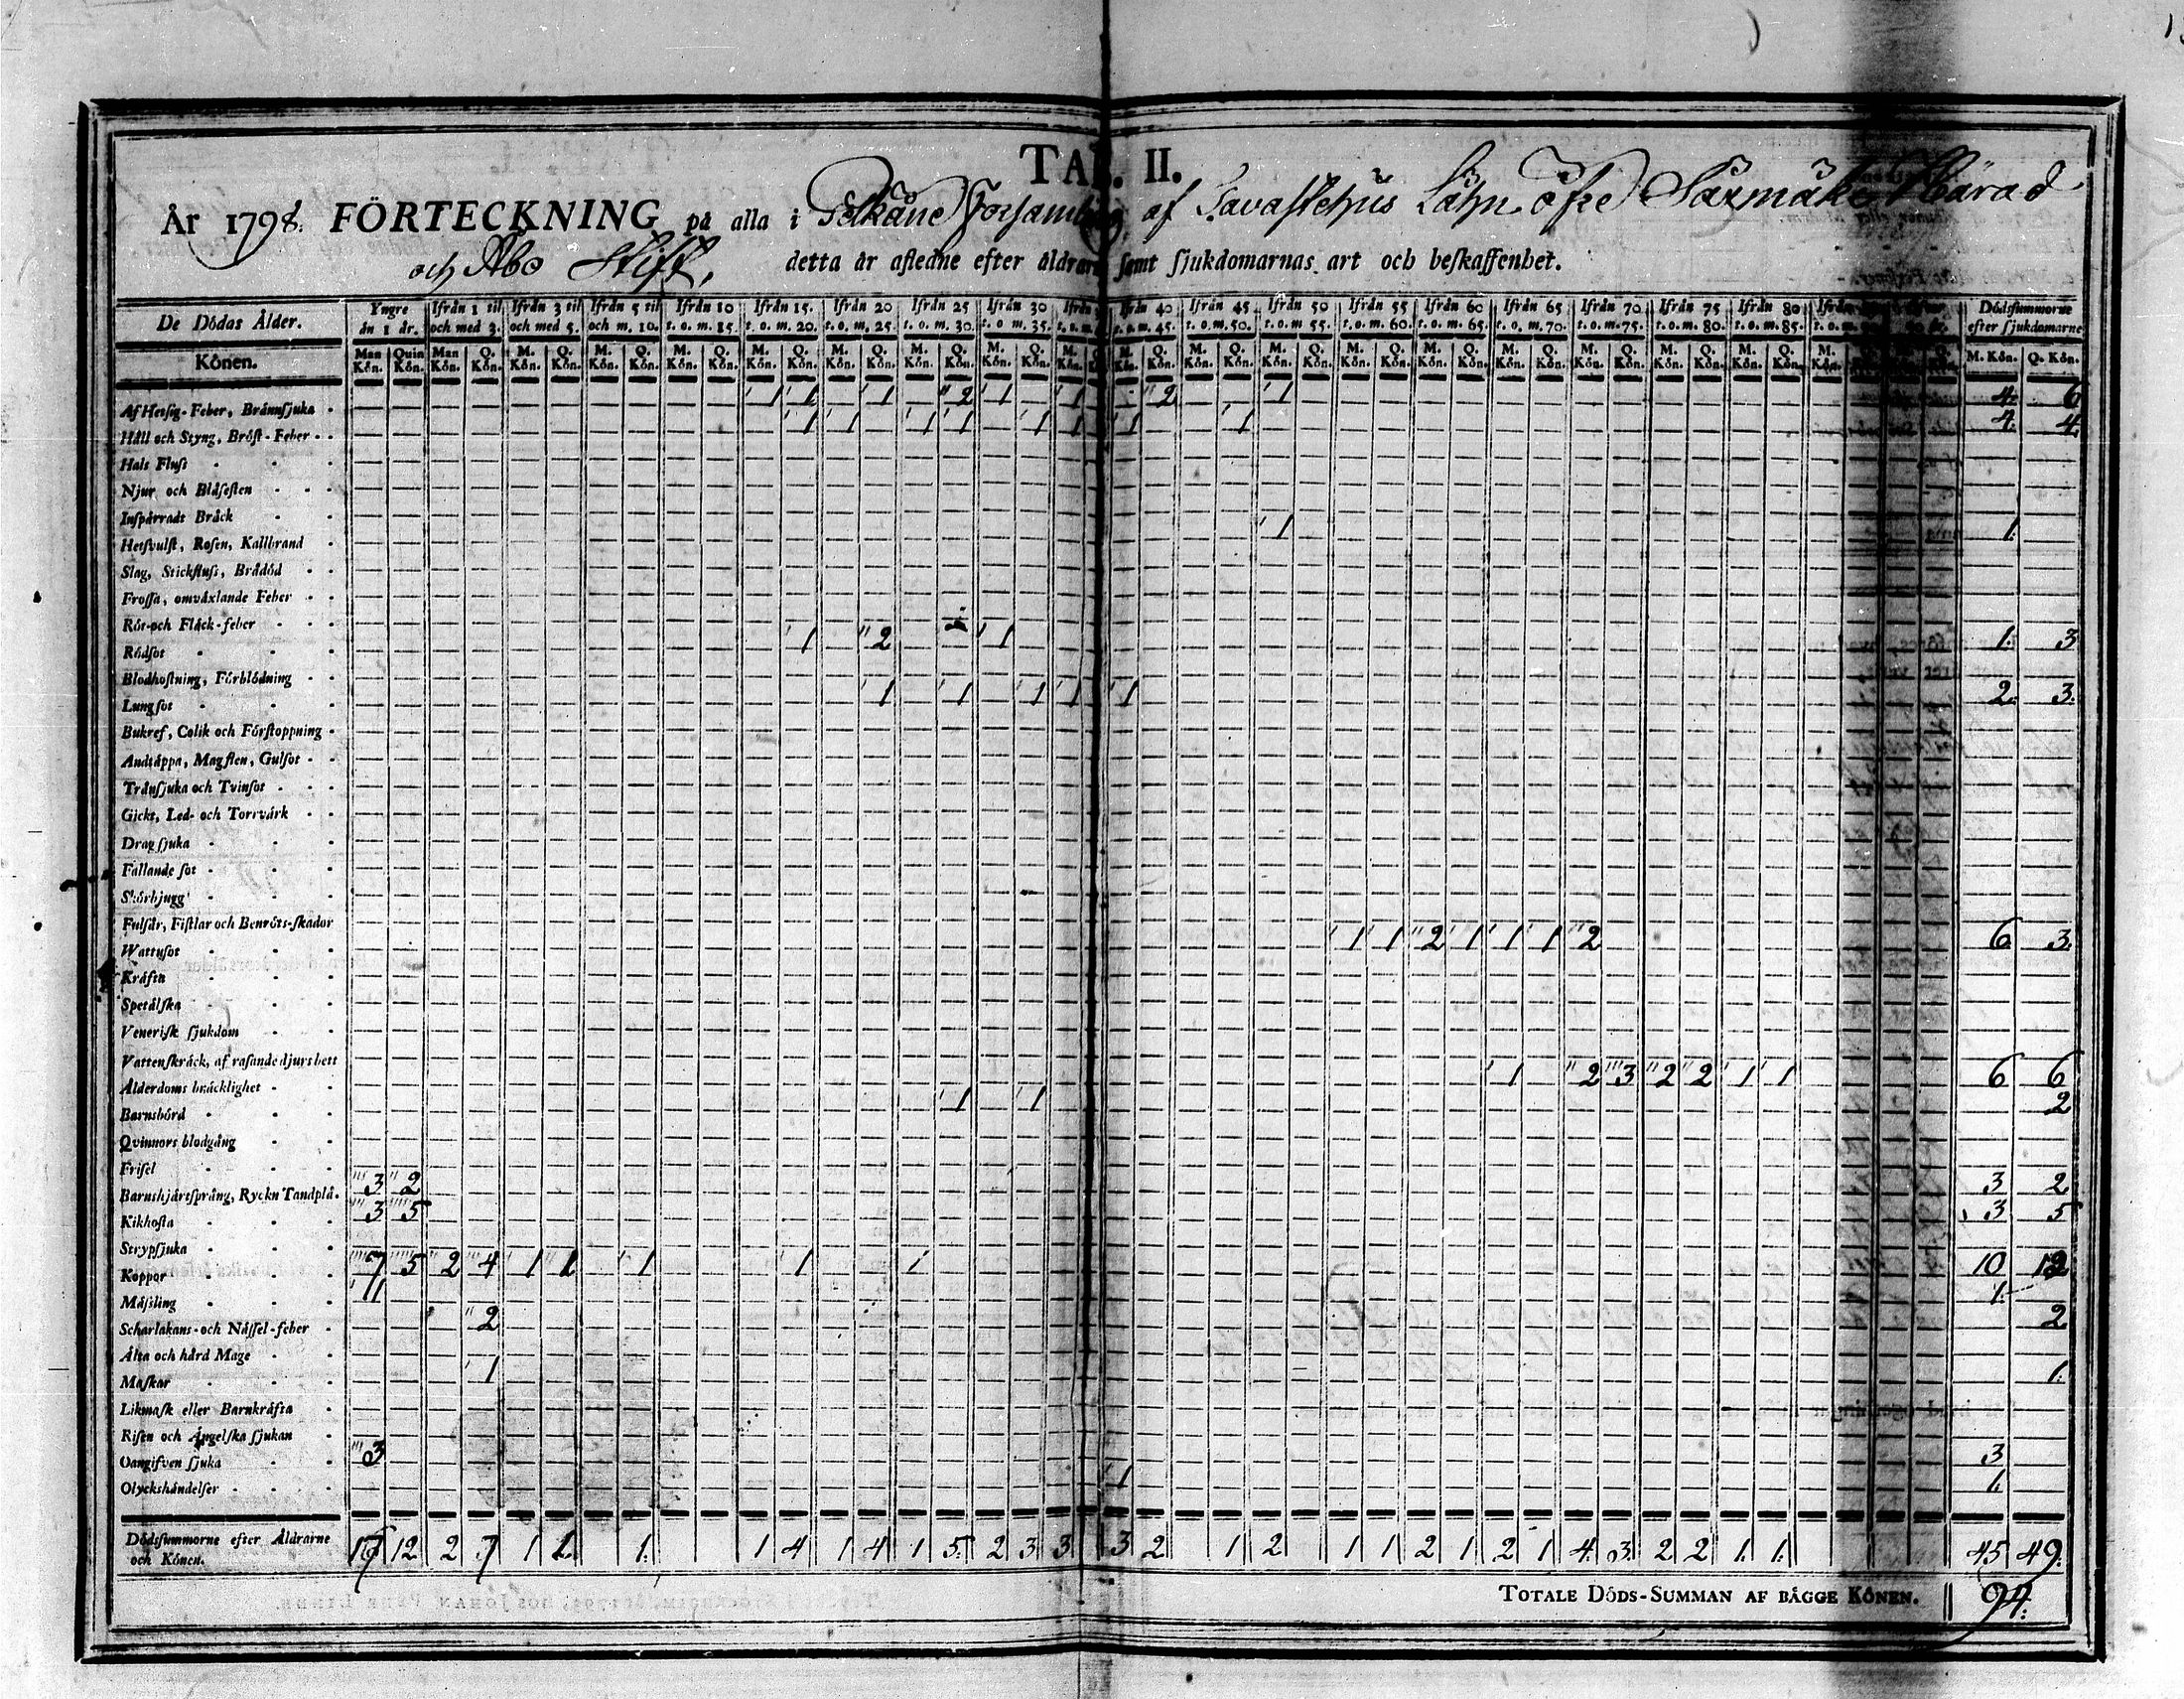 TAB. II.
År 1798. FÖRTECKNING på alla i Pelkäne Församling af Tavastehus Lähn öfre Saxmäke Härad
och Åbo Stift, detta år afledne efter åldrarne samt sjukdomarnas art och beskaffenhet.
De Dödas Ålder. Yngre än 1 år. Ifrån 1 til och med 3. Ifrån 3 til och med 5. Ifrån 5 til och m. 10. Ifrån 10 t. o. m. 15. Ifrån 15. t. o. m. 20. Ifrån 20 t. o. m. 25. Ifrån 25 t. o. m. 30. Ifrån 30 t. o. m. 35. Ifrån t. o. m. Ifrån 40 t. o. m. 45. Ifrån 45. t. o. m. 50. Ifrån 50 t. o. m. 55. Ifrån 55 t. o. m. 60. Ifrån 60 t. o. m. 65. Ifrån 65 t. o. m. 70. Ifrån 70 t. o. m. 75. Ifrån 75 t. o. m. 80. Ifrån 80 t. o. m. 85. Ifrån t. o. m. Dödsummorne efter sjukdomarne
Könen. Man Kön. Quin Kön. Man Kön. Q. Kön. M. Kön. Q. Kön. M. Kön. Q. Kön. M. Kön. Q. Kön. M. Kön. Q. Kön. M. Kön. Q. Kön. M. Kön. Q. Kön. M. Kön. Q. Kön. M. Kön. M. Kön. Q. Kön. M. Kön. Q. Kön. M. Kön. Q. Kön. M. Kön. Q. Kön. M. Kön. Q. Kön. M. Kön. Q. Kön. M. Kön. Q. Kön. M. Kön. Q. Kön. M. Kön. Q. Kön. M. Kön. M. Kön. Q. Kön.
Af Hetsig-Feber, Brännsjuka 1 1 1 2 1 1 2 1 4. 6
Håll och Styng, Bröst-Feber 1 1 1 1 1 1 1 1 4. 4.
Hals Fluss
Njur och Blåsesten
Inspärradt Bråck
Hetsvulst, Rosen, Kallbrand 1 1.
Slag, Stickfluss, Brådöd
Frossa, omväxlande Feber
Röt-och Fläck-feber
Rödsot 1 2 1 1. 3
Blodhostning, Förblödning
Lungsot 1 1 1 1 1 2. 3.
Bukref, Colik och Förstoppning
Andtäppa, Magsten, Gulsot
Trånsjuka och Tvinsot
Gickt, Led- och Torrvärk
Dragsjuka
Fallande sot
Skörbjugg
Fulsår, Fistlar och Benröts-skador
Wattusot 1 1 2 1 1 1 2 6 3.
Kräfta
Spetälska
Venerisk sjukdom
Vattenskräck, af rasande djurs bett
Ålderdoms bräcklighet 1 2 3 2 2 1 1 6 6
Barnsbörd 1 1 2
Qvinnors blodgång
Frisel
Barnshjärtsprång, Ryckn Tandplå. 3 2 3 2
Kikhosta 3 5 3 5
Strypsjuka
Koppor 7 5 2 4 1 1 1 1 1 10 12
Mässling 1 1.
Scharlakans-och Nässel-feber 2 2
Älta och hård Mage
Maskar 1 1.
Likmask eller Barnkräfta
Risen och Ängelska sjukan
Oangifven sjuka 3 3
Olyckshändelser 1 1.
Dödssummorne efter Åldrarne och Könen. 17 12 2 7 1 1 1. 1 4 1 4 1 5. 2 3 3 3 2 1 2 1 1 2 1 2 1 4. 3. 2 2 1. 1. 45 49.
TOTALE DÖDS-SUMMAN AF BÄGGE KÖNEN. 94.